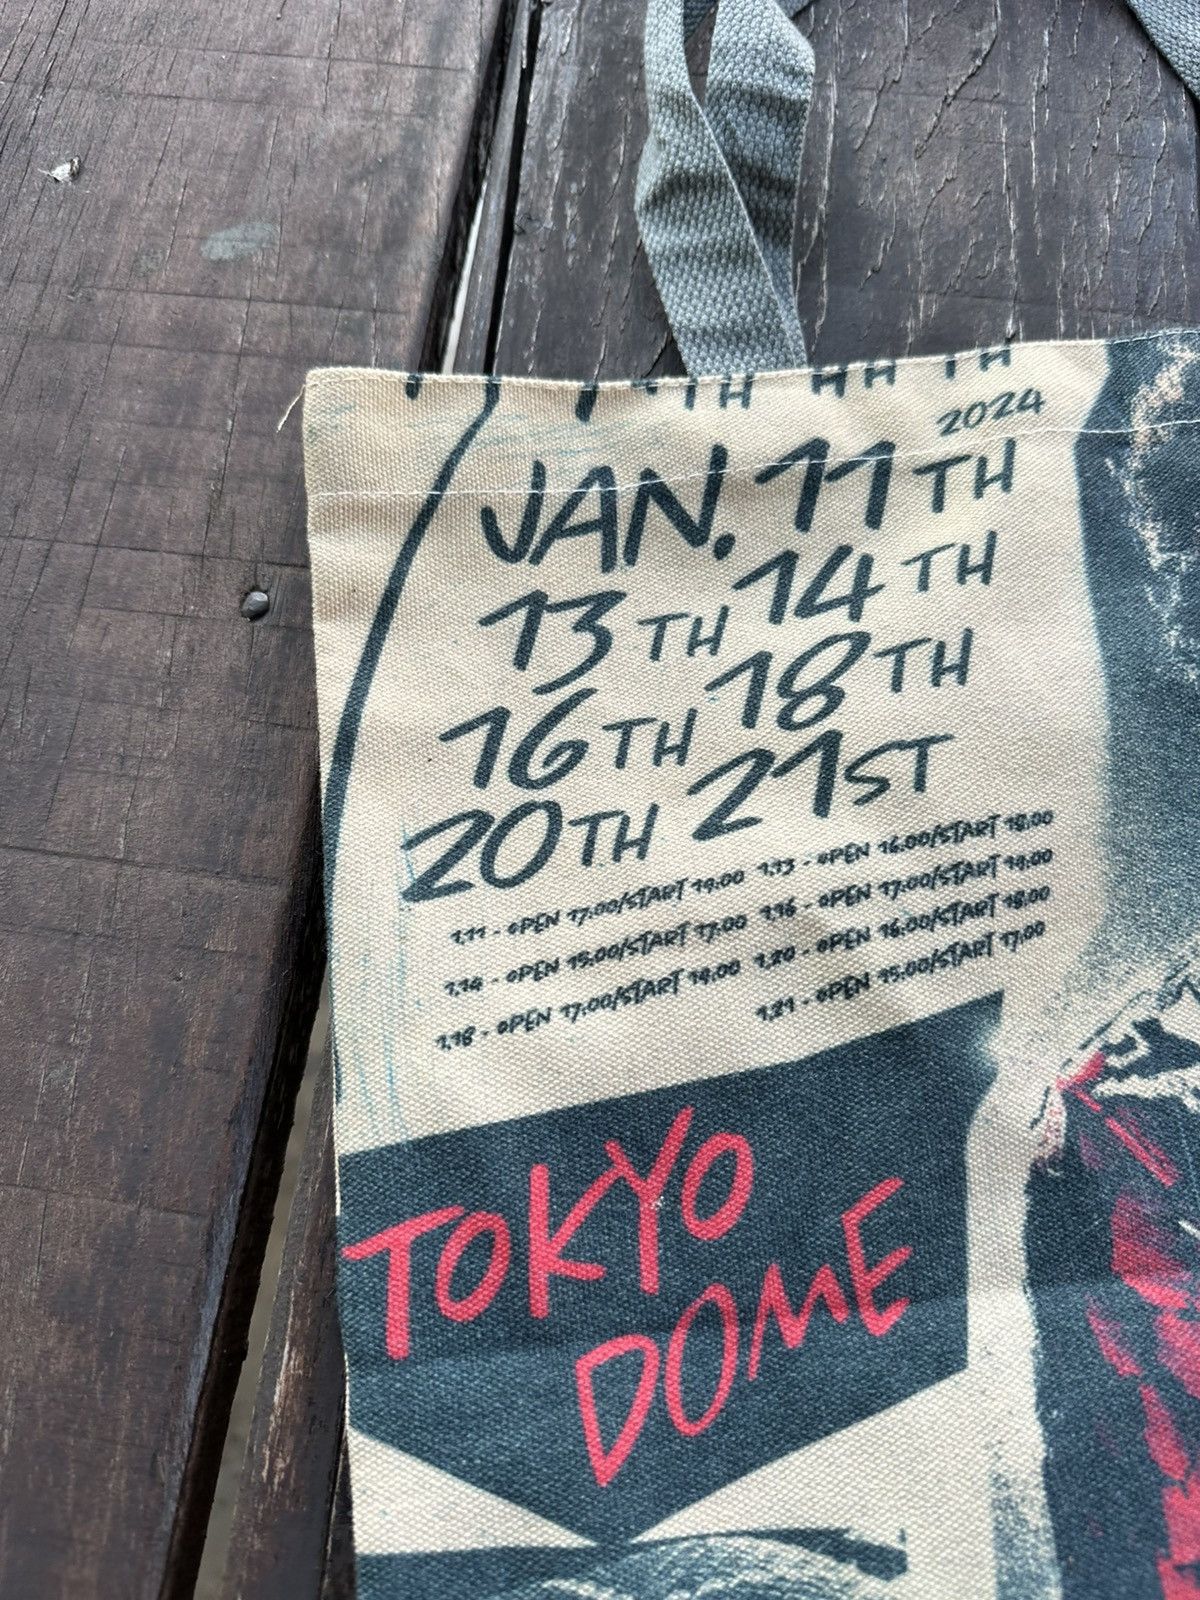 2024
JAN. 11TH
13TH 14TH
16TH 18TH
20TH 21ST
1.11 - OPEN 17:00/START 19:00 1.13 - OPEN 16:00/START 18:00
1.14 - OPEN 15:00/START 17:00 1.16 - OPEN 17:00/START 19:00
1.18 - OPEN 17:00/START 19:00 1.20 - OPEN 16:00/START 18:00
1.21 - OPEN 15:00/START 17:00
TOKYO
DOME